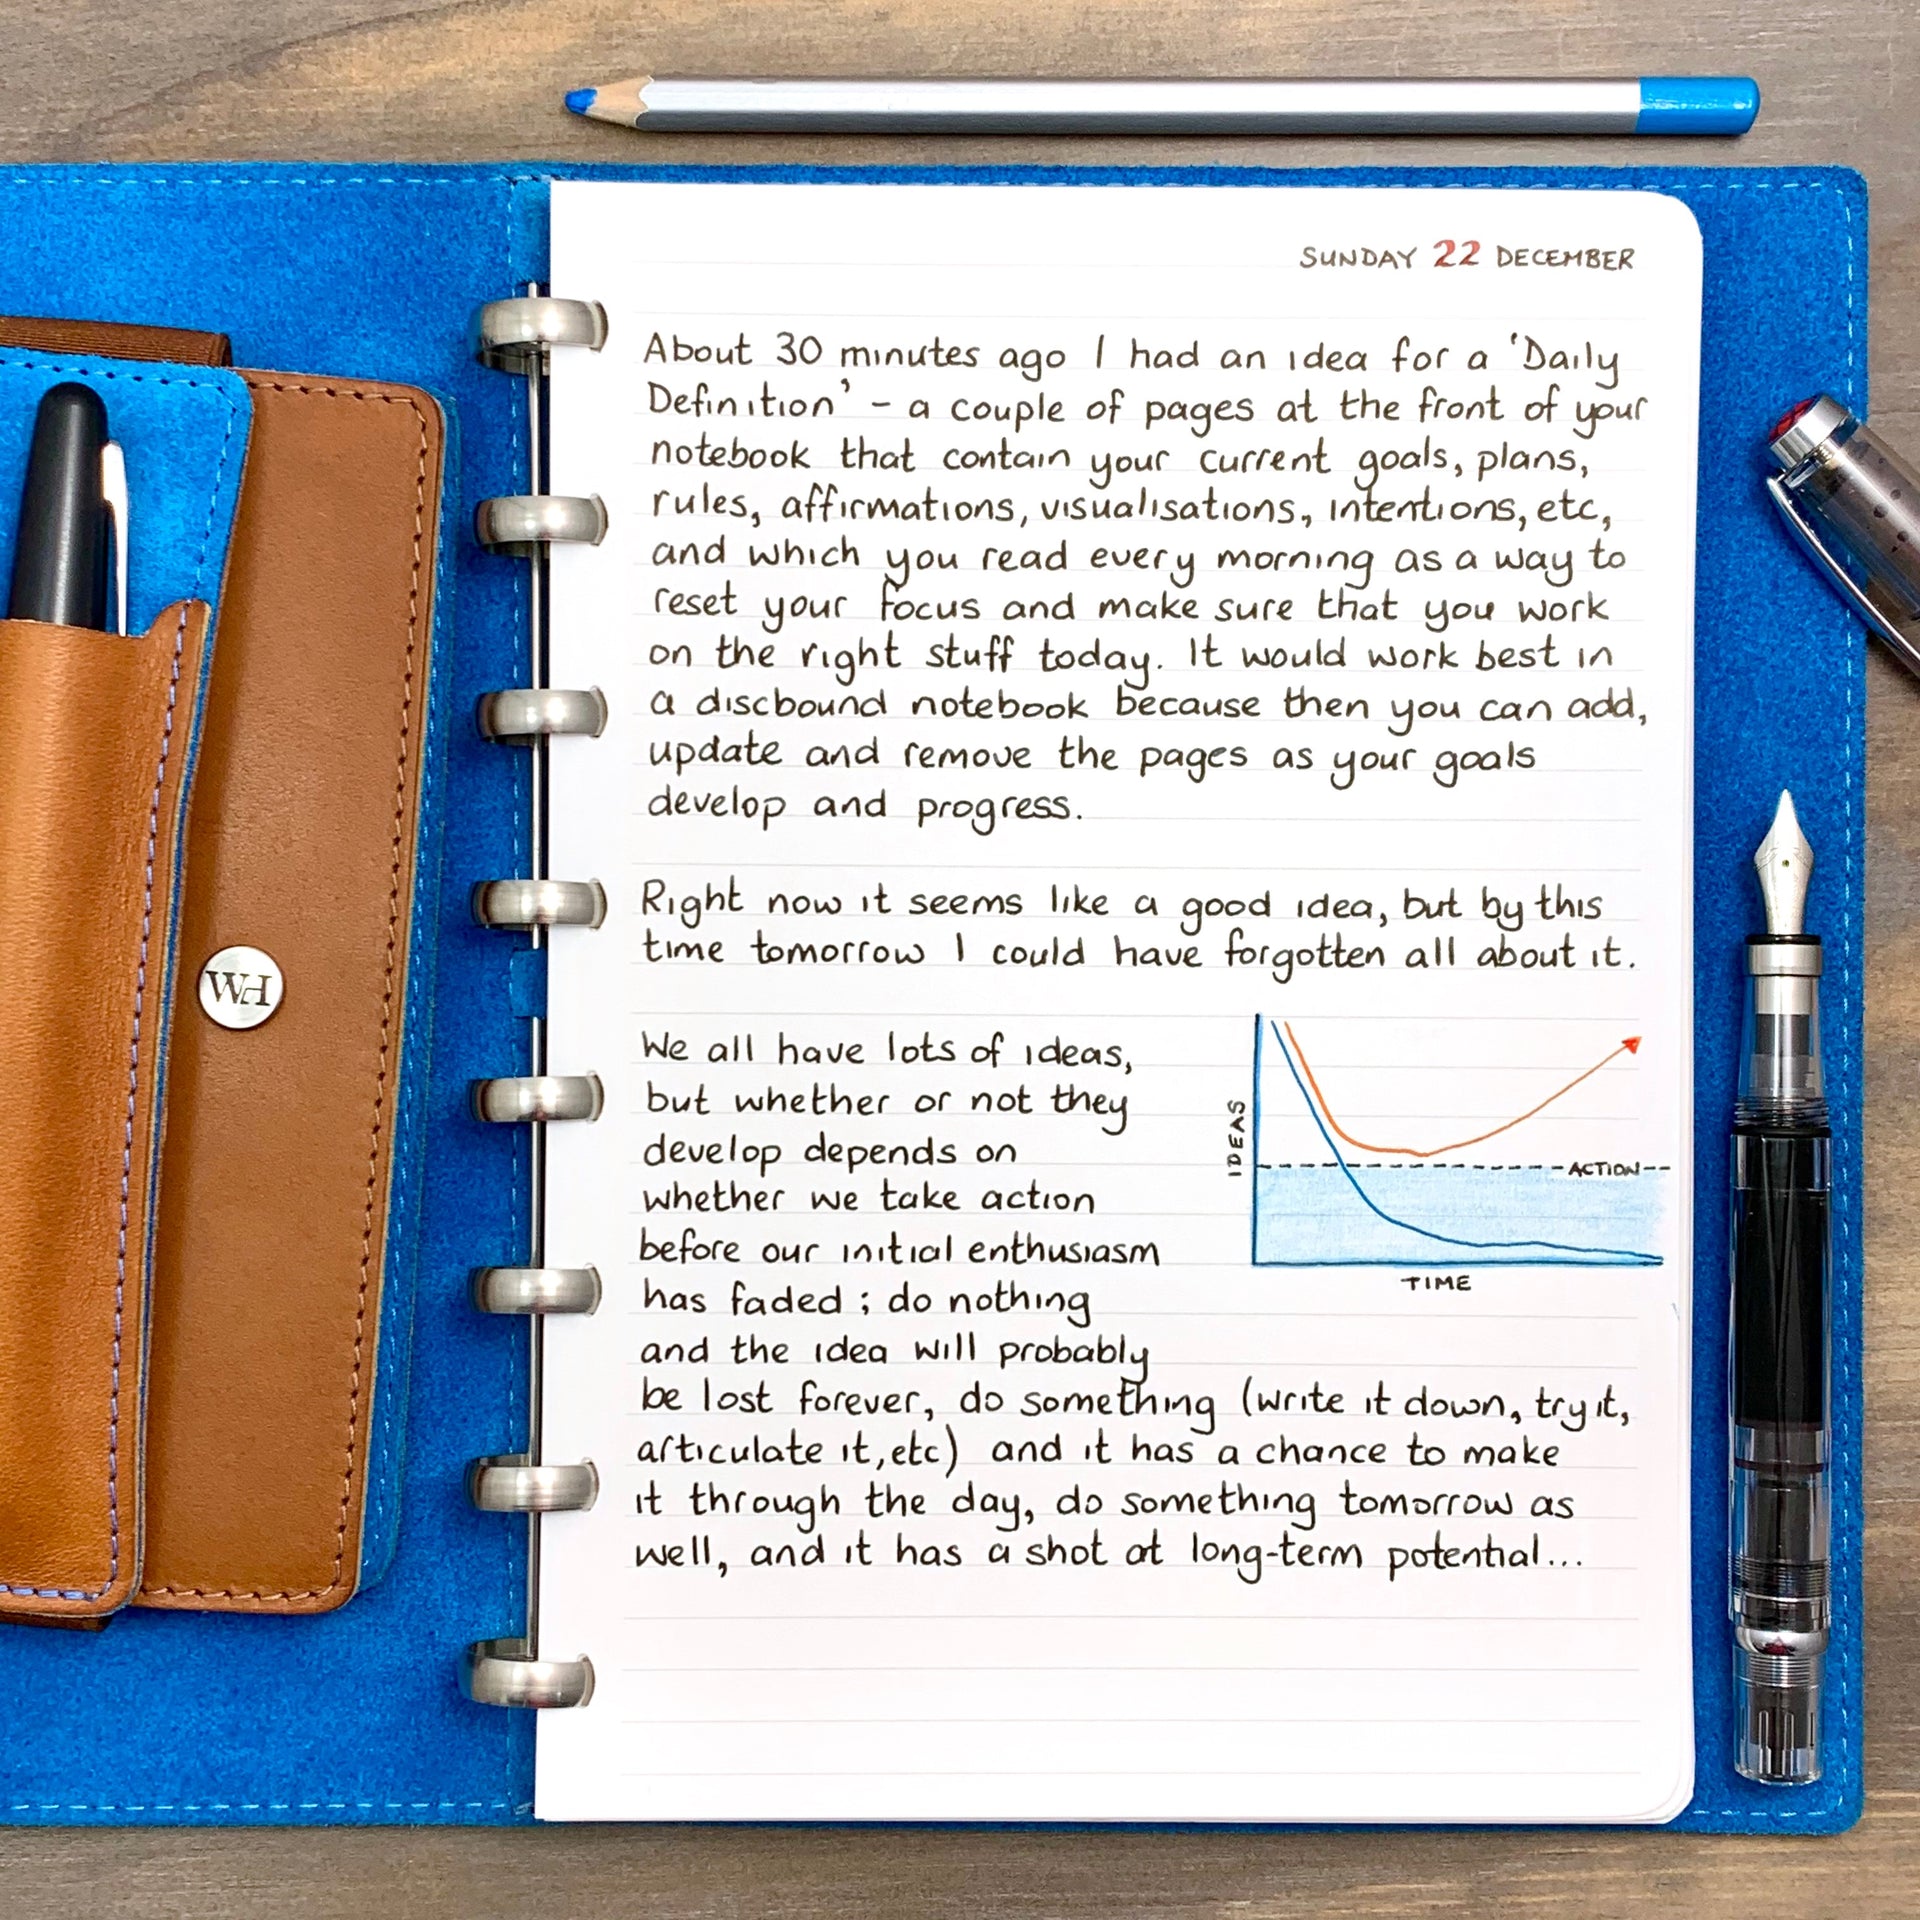 SUNDAY 22 DECEMBER
About 30 minutes ago I had an idea for a 'Daily
Definition' - a couple of pages at the front of your
notebook that contain your current goals, plans,
rules, affirmations, visualisations, intentions, etc,
and which you read every morning as a way to
reset your focus and make sure that you work
on the right stuff today. It would work best in
a discbound notebook because then you can add,
update and remove the pages as your goals
develop and progress.
Right now it seems like a good idea, but by this
time tomorrow I could have forgotten all about it.
We all have lots of ideas,
but whether or not they
develop depends on
whether we take action
before our initial enthusiasm
has faded; do nothing
and the idea will probably
be lost forever, do something (write it down, try it,
articulate it, etc) and it has a chance to make
it through the day, do something tomorrow as
well, and it has a shot at long-term potential...
IDEAS
ACTION
TIME
WH